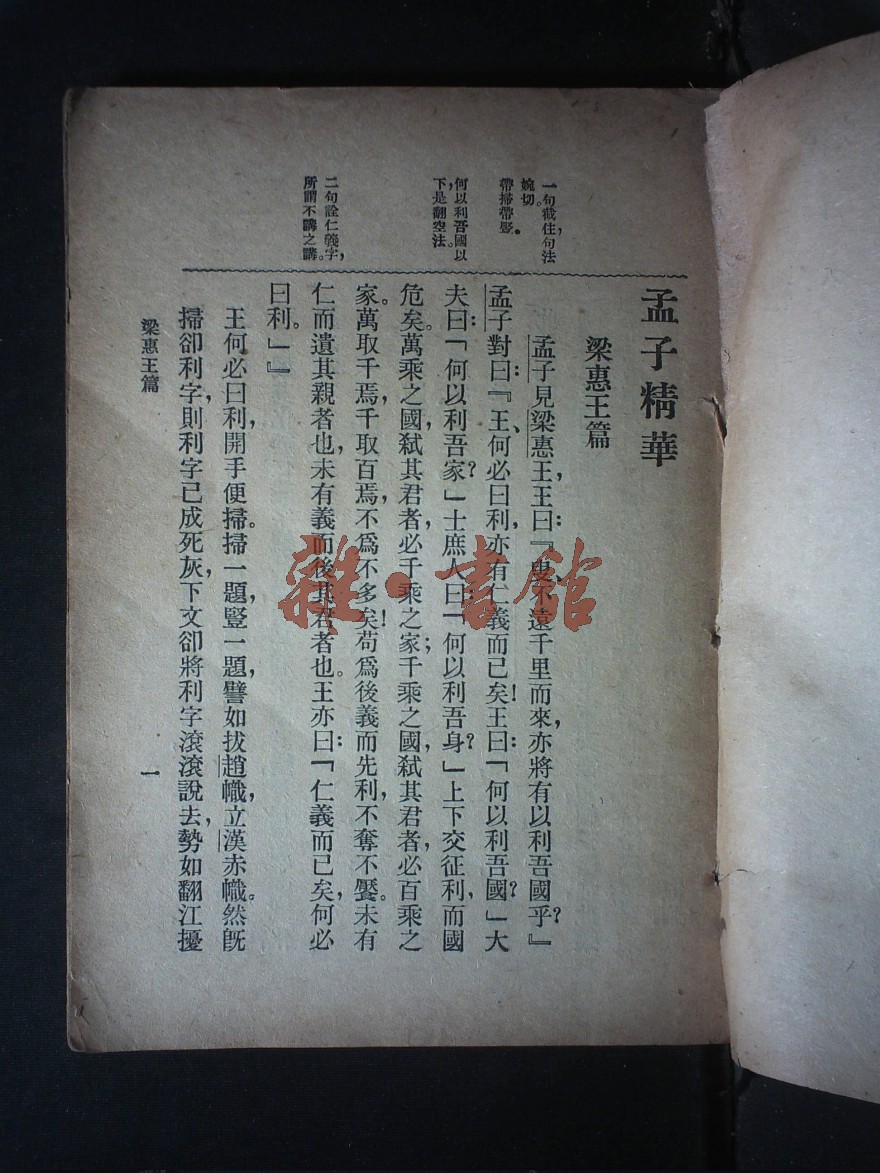 一句截住，句法
婉切。
帶掃帶豎。
何以利吾國以
下，是翻空法。
二句詮仁義字，
所謂不講之講。
孟子精華
梁惠王篇
孟子見梁惠王，王曰：『叟、不遠千里而來，亦將有以利吾國乎？』
孟子對曰：『王、何必曰利，亦有仁義而已矣！王曰：「何以利吾國？」大
夫曰：「何以利吾家？」士庶人曰：「何以利吾身？」上下交征利，而國
危矣。萬乘之國，弒其君者，必千乘之家；千乘之國，弒其君者，必百乘之
家。萬取千焉，千取百焉，不爲不多矣！苟爲後義而先利，不奪不饜。未有
仁而遺其親者也，未有義而後其君者也。王亦曰：「仁義而已矣，何必
曰利。」』
王何必曰利，開手便掃。掃一題，豎一題，譬如拔趙幟，立漢赤幟。然旣
掃卻利字，則利字已成死灰，下文卻將利字滾滾說去，勢如翻江擾
梁惠王篇
一
雜·書館